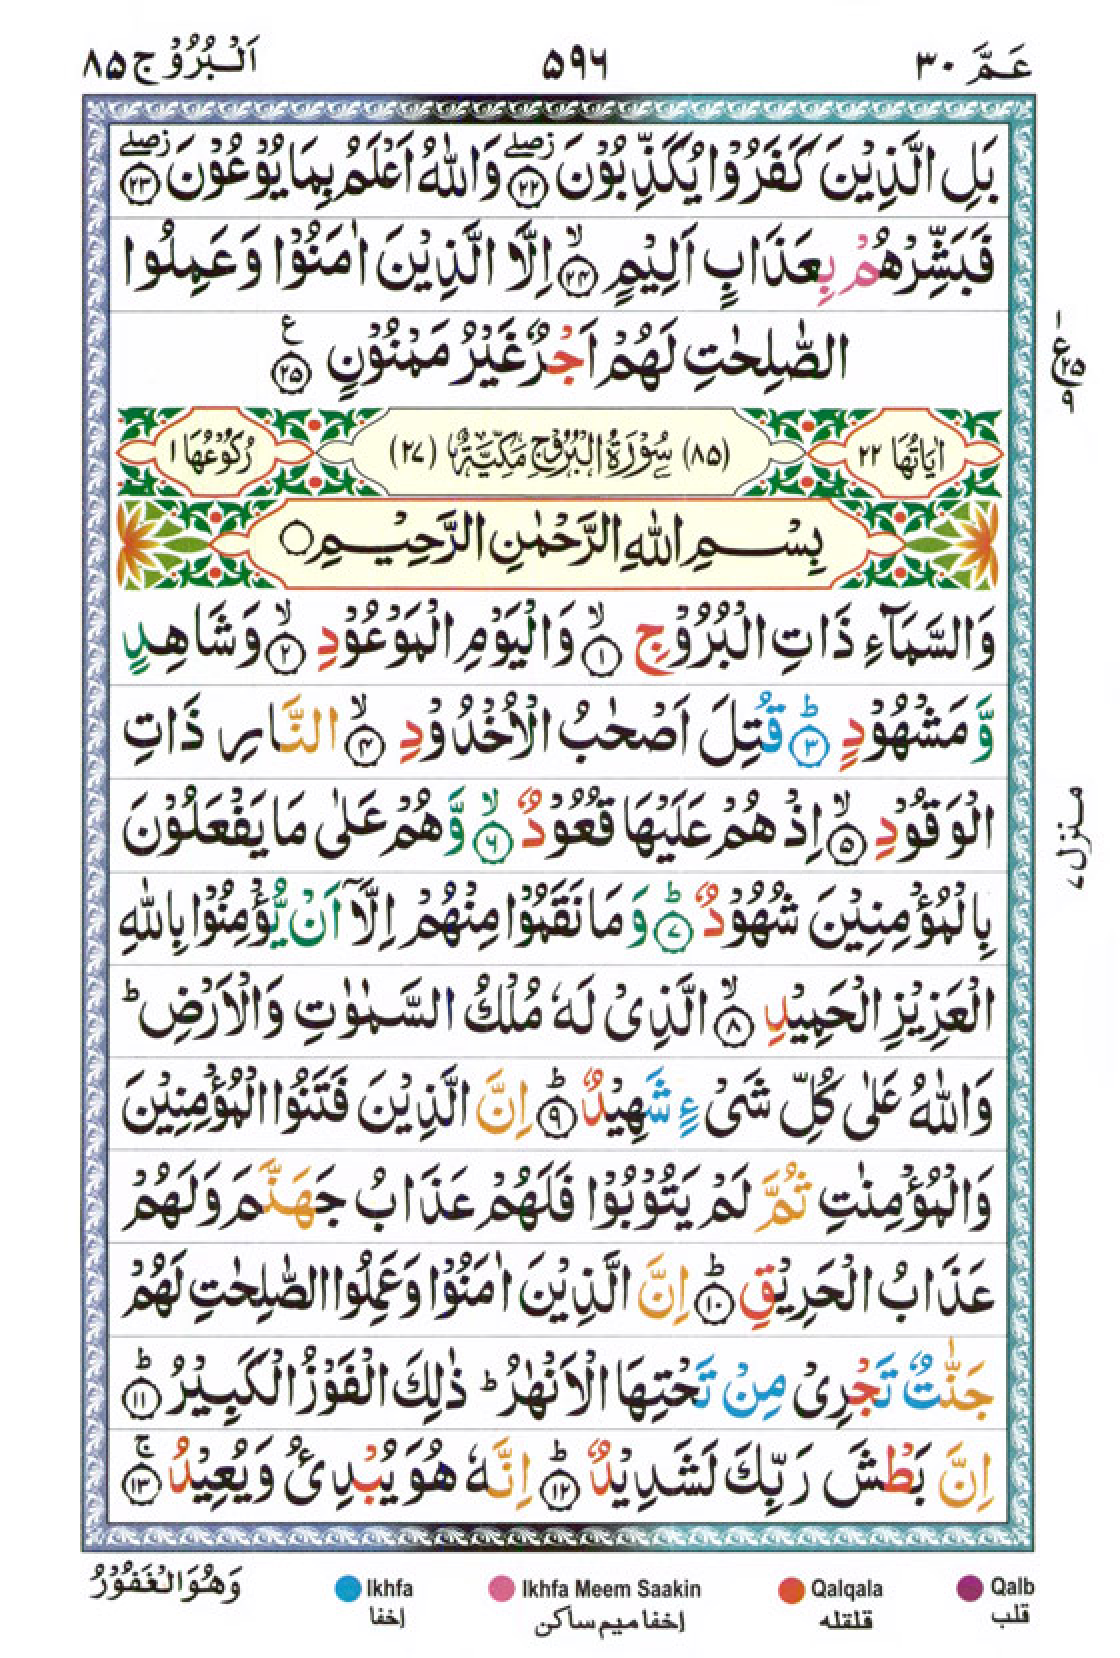 عَمَّ ٣٠
۵۹۶
اَلْبُرُوْج ۸۵
بَلِ الَّذِيْنَ كَفَرُوْا يُكَذِّبُوْنَ ۲۲ زصلے وَاللّٰهُ اَعْلَمُ بِمَا يُوْعُوْنَ ۲۳ زصلے
فَبَشِّرْهُمْ بِعَذَابٍ اَلِيْمٍ ۲۴ ۙ اِلَّا الَّذِيْنَ اٰمَنُوْا وَعَمِلُوا
الصّٰلِحٰتِ لَهُمْ اَجْرٌ غَيْرُ مَمْنُوْنٍ ۲۵ ع
ع ۲۵ ۹
اٰيَاتُهَا ۲۲
(۸۵) سُوْرَةُ الْبُرُوْجِ مَكِّيَّةٌ (۲۷)
رُكُوْعُهَا ۱
بِسْمِ اللّٰهِ الرَّحْمٰنِ الرَّحِيْمِ
وَالسَّمَآءِ ذَاتِ الْبُرُوْجِ ۱ ۙ وَالْيَوْمِ الْمَوْعُوْدِ ۲ ۙ وَشَاهِدٍ
وَّمَشْهُوْدٍ ۳ ؕ قُتِلَ اَصْحٰبُ الْاُخْدُوْدِ ۴ ۙ النَّارِ ذَاتِ
الْوَقُوْدِ ۵ ۙ اِذْ هُمْ عَلَيْهَا قُعُوْدٌ ۶ ۙ وَّهُمْ عَلٰى مَا يَفْعَلُوْنَ
منزل ۷
بِالْمُؤْمِنِيْنَ شُهُوْدٌ ۷ ؕ وَمَا نَقَمُوْا مِنْهُمْ اِلَّاۤ اَنْ يُّؤْمِنُوْا بِاللّٰهِ
الْعَزِيْزِ الْحَمِيْدِ ۸ ۙ الَّذِىْ لَهٗ مُلْكُ السَّمٰوٰتِ وَالْاَرْضِ ؕ
وَاللّٰهُ عَلٰى كُلِّ شَىْءٍ شَهِيْدٌ ۹ ؕ اِنَّ الَّذِيْنَ فَتَنُوا الْمُؤْمِنِيْنَ
وَالْمُؤْمِنٰتِ ثُمَّ لَمْ يَتُوْبُوْا فَلَهُمْ عَذَابُ جَهَنَّمَ وَلَهُمْ
عَذَابُ الْحَرِيْقِ ۱۰ ؕ اِنَّ الَّذِيْنَ اٰمَنُوْا وَعَمِلُوا الصّٰلِحٰتِ لَهُمْ
جَنّٰتٌ تَجْرِىْ مِنْ تَحْتِهَا الْاَنْهٰرُ ؕ ذٰلِكَ الْفَوْزُ الْكَبِيْرُ ۱۱ ؕ
اِنَّ بَطْشَ رَبِّكَ لَشَدِيْدٌ ۱۲ ؕ اِنَّهٗ هُوَ يُبْدِئُ وَيُعِيْدُ ۱۳ ۚ
وَهُوَ الْغَفُوْرُ
Ikhfa
اخفا
Ikhfa Meem Saakin
اخفا میم ساکن
Qalqala
قلقله
Qalb
قلب